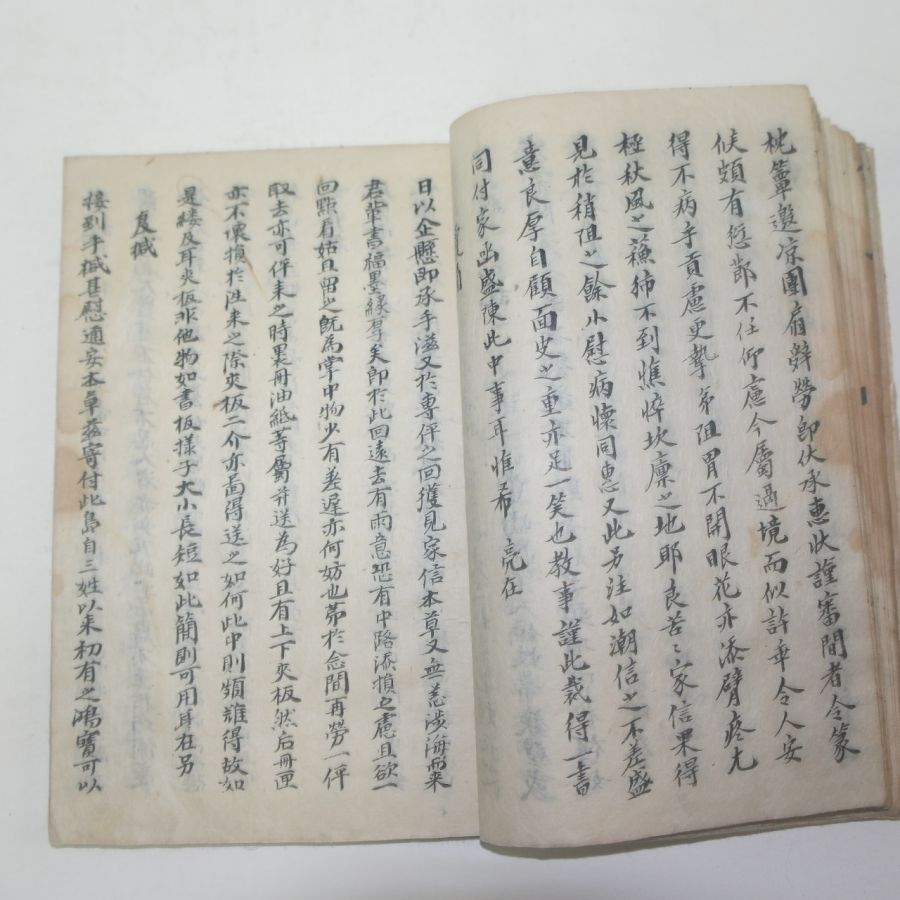 枕簟邀凉團扇辭勞卽伏承惠狀謹審間者令篆
候頗有愆節不任仰慮今屬過境而似許華令人安
得不病乎貢慮更摯弟阻胃不開眼花亦添臂疼尤
極秋風之蕭綈不到憔悴坎廩之地耶良苦〻家信果得
見於稍阻之餘小慰病懷同惠又此另注如潮信之不差盛
意良厚自顧面皮之重亦足一笑也教事謹此裁得一書
同付家凾盛陳此中事耳惟希 亮在
日以企懸即承手滋又於專伻之回獲見家信本草又無恙涉海而來
君輩書福墨緣厚矣即於此回遠去有雨意恐有中路添損之慮且欲一
回點看姑且留之旣為掌中物少有差遲亦何妨也第於念間再勞一伻
取去亦可伻來之時裹冊油紙等屬并送為好且有上下夾板然后冊匣
亦不壞損於注來之際夾板二介亦啚得送之如何此中則頗難得故如
是縷及耳夾板非他物如書板樣子大小長短如此簡則可用耳在另
夏椷
接到手椷甚慰適安本草茲寄付此島自三姓以來初有之鴻寶可以